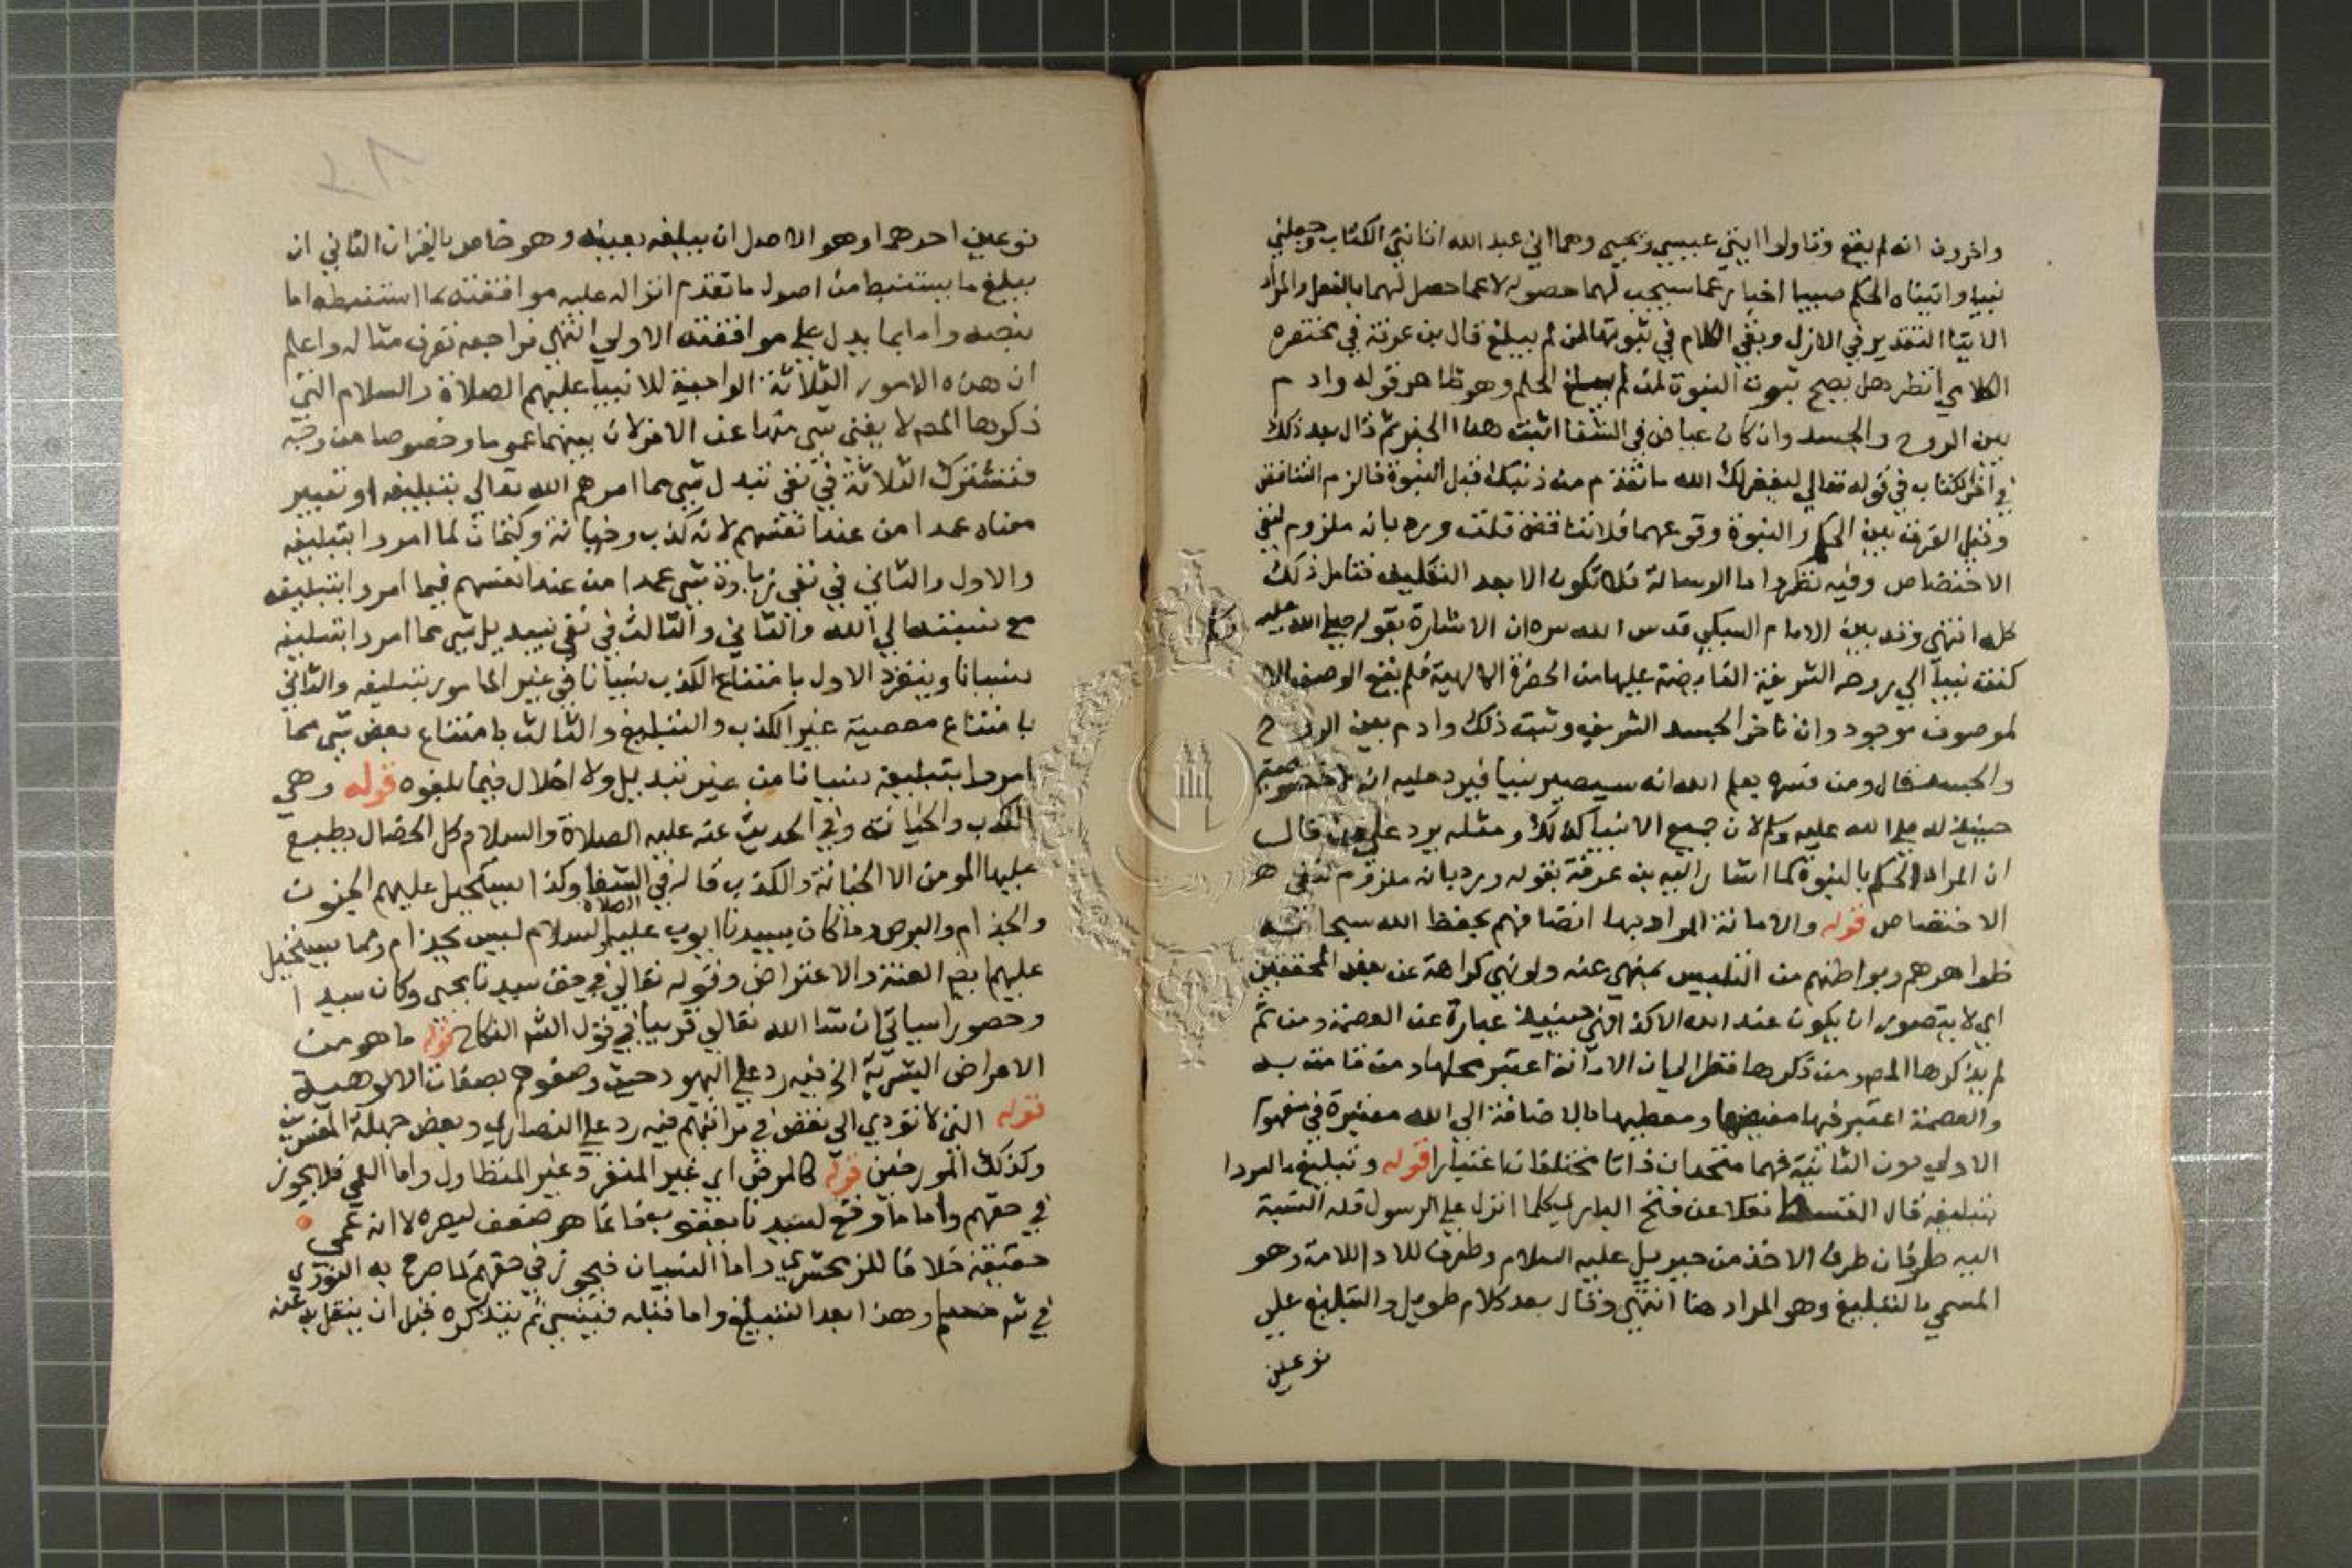 واخرون انه لم يقع وتاولوا ايتي عيسي ويحيي وهما اني عبد الله اتاني الكتاب وجعلني
نبيا واتيناه الحكم صبيا اخبار عما سيجب لهما حصوله لا عما حصل لهما بالفعل والمراد
الايتا التقدير في الازل وبقي الكلام في ثبوتها لمن لم يبلغ قال بن عرفة في مختصره
الكلامي انظر هل يصح ثبوت النبوة لمن لم يبلغ الحلم وهو ظاهر قوله وادم
بين الروح والجسد وان كان عياض في الشفا اثبت هذا الخبر ثم قال بعد ذلك
في اخر الكتاب في قوله تعالي ليغفر لك الله ما تقدم من ذنبك قبل النبوة فالزم التناقض
وقيل الفرق بين الحكم والنبوة وقوعهما فلا تناقض قلت ويرد بانه ملزوم لنفي
الاختصاص وفيه نظر واما الرسالة فلا تكون الا بعد التكليف فتامل ذلك
كله انتهي وقد بين الامام السبكي قدس الله سره ان الاشارة بقوله صلي الله عليه وسلم
كنت نبيا الي روحه الشريفة الفايضة عليها من الحضرة الالهية فلم يقع الوصف الا
لموصوف موجود وان تاخر الجسد الشريف وثبت ذلك وادم بين الروح
والجسد قال ومن فسره بعلم الله انه سيصير نبيا فيرد عليه ان لا خصوصية
حينيذ له صلي الله عليه وسلم لان جميع الانبيا كذلك ومثله يرد علي من قال
ان المراد الحكم بالنبوة كما اشار اليه بن عرفة بقوله ويرد بانه ملزوم لنفي
الاختصاص قوله والامانة المراد بها اتصافهم بحفظ الله سبحانه
ظواهرهم وبواطنهم من التلبيس بمنهي عنه ولو نهي كراهة عن بعض المحققين
اي لا يتصور ان يكون عند الله الا كذا فهي حينيذ عبارة عن العصمة ومن ثم
لم يذكرها المص ومن ذكرها فنظر الي ان الامانة اعتبر محلها ومن قامت به
والعصمة اعتبر فيها مفيضها ومعطيها فالاضافة الي الله معتبرة في مفهوم
الاولي دون الثانية فهما متحدان ذاتا مختلفان اعتبارا قوله وتبليغ ما امروا
بتبليغه قال القسطلاني نقلا عن فتح الباري كلما انزل علي الرسول فله بالنسبة
اليه طرفان طرف الاخذ من جبريل عليه السلام وطرف للاداء للامة وهو
المسمي بالتبليغ وهو المراد هنا انتهي وقال بعد كلام طويل والتبليغ علي
نوعين
نوعين احدهما وهو الاصل ان يبلغه بعينه وهو خاص بالقران الثاني ان
يبلغ ما يستنبط من اصول ما تقدم انزاله عليه موافقته لما استنبطه اما
بنصه واما بما يدل علي موافقته الاولي انتهي فراجعه تعرف مثاله واعلم
ان هذه الامور الثلاثة الواجبة للانبيا عليهم الصلاة والسلام التي
ذكرها المص لا يغني شي منها عن الاخر لان بينهما عموما وخصوصا من وجه
فتشترك الثلاثة في نفي تبدل شي مما امرهم الله تعالي بتبليغه او تغيير
معناه عمدا من عند انفسهم لانه كذب وخيانة وكتمان لما امروا بتبليغه
والاول والثاني في نفي زيادة شي عمدا من عند انفسهم فيما امروا بتبليغه
مع نسبته الي الله والثاني والثالث في نفي تبديل شي مما امروا بتبليغه
نسيانا وينفرد الاول بامتناع الكذب نسيانا في غير المامور بتبليغه والثاني
بامتناع معصية غير الكذب والتبليغ والثالث بامتناع بعض شي مما
امروا بتبليغه نسيانا من غير تبديل ولا اخلال فيما بلغوه قوله وهي
الكذب والخيانة وفي الحديث عنه عليه الصلاة والسلام كل الخصال يطبع
عليها المومن الا الخيانة والكذب قاله في الشفا وكذا يستحيل عليهم الجنون
والجذام والبرص وما كان بسيدنا ايوب عليه الصلاة والسلام ليس بجذام ومما يستحيل
عليهم ايضا العنة والاعتراض وقوله تعالي في حق سيدنا يحيي وكان سيدا
وحصورا سياتي ان شا الله تعالي قريبا في قول الش النكاح قوله ما هو من
الاعراض البشرية الخ فيه رد علي اليهود حيث وصفوهم بصفات الالوهية
قوله التي لا تودي الي نقص في مراتبهم فيه رد علي النصاري وبعض جهلة المفسرين
وكذلك المورخين قوله كالمرض اي غير المنفر وغير المتطاول واما العمي فلا يجوز
في حقهم واما ما وقع لسيدنا يعقوب فانما هو ضعف لبصره لا انه عمي
حقيقة خلافا للزمخشري واما النسيان فيجوز في حقهم لما صرح به النووي
في ش مسلم وهذا بعد التبليغ واما قبله فينسي ثم يتذكره قبل ان ينتقل به عنه